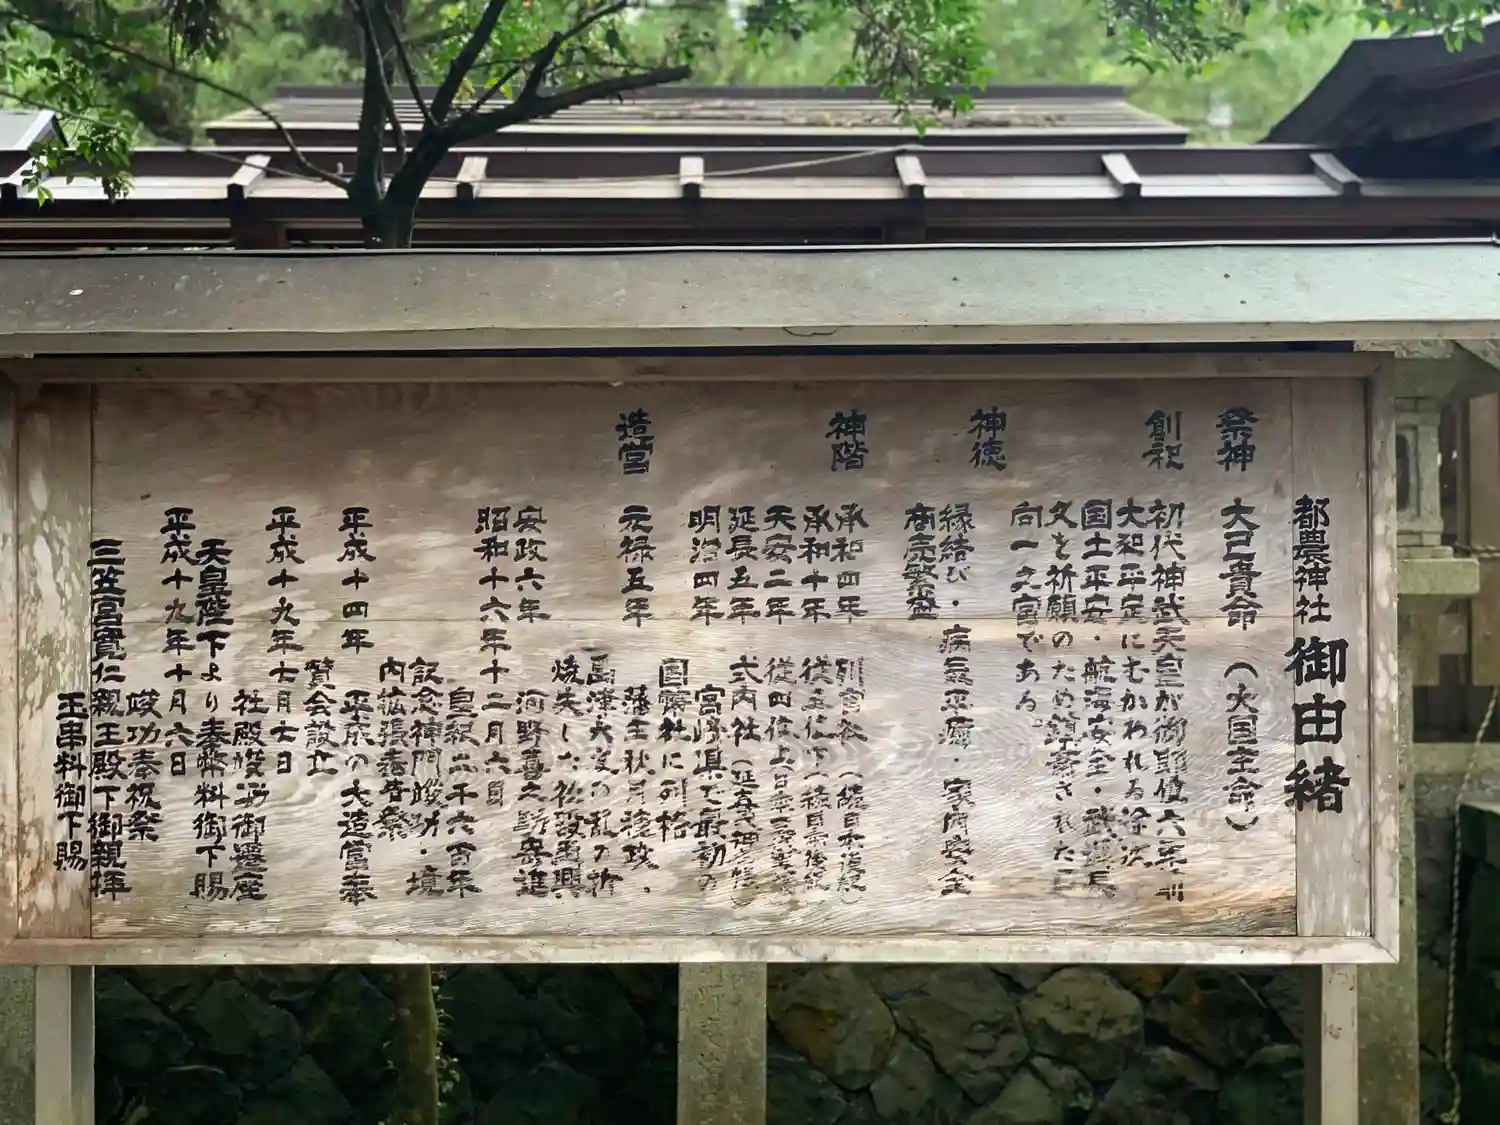 都農神社 御由緒
祭神 大己貴命（大国主命）
創祀 初代神武天皇が御即位六年前
大和平定にむかわれる途次
国土平安・航海安全・武運長
久を祈願のため鎮斎された日
向一之宮である。
神徳 縁結び・病気平癒・家内安全
商売繁盛
神階 承和四年 列官社（続日本後紀）
承和十年 従五位下（続日本後紀）
天安二年 従四位上
延長五年 式内社（延喜式神名帳）
明治四年 宮崎県で最初の
国幣社に列格
造営 元禄五年 藩主秋月種政、
島津・大友の乱の折
焼失した社殿再興
安政六年 河野喜之助寄進
昭和十六年十二月六日
皇紀二千六百年
記念神門竣功・境
内拡張奉告祭
平成十四年 平成の大造営奉
賛会設立
平成十九年七月七日
社殿竣功御遷座
天皇陛下より奉幣料御下賜
平成十九年十月六日
竣功奉祝祭
三笠宮寛仁親王殿下御親拝
玉串料御下賜